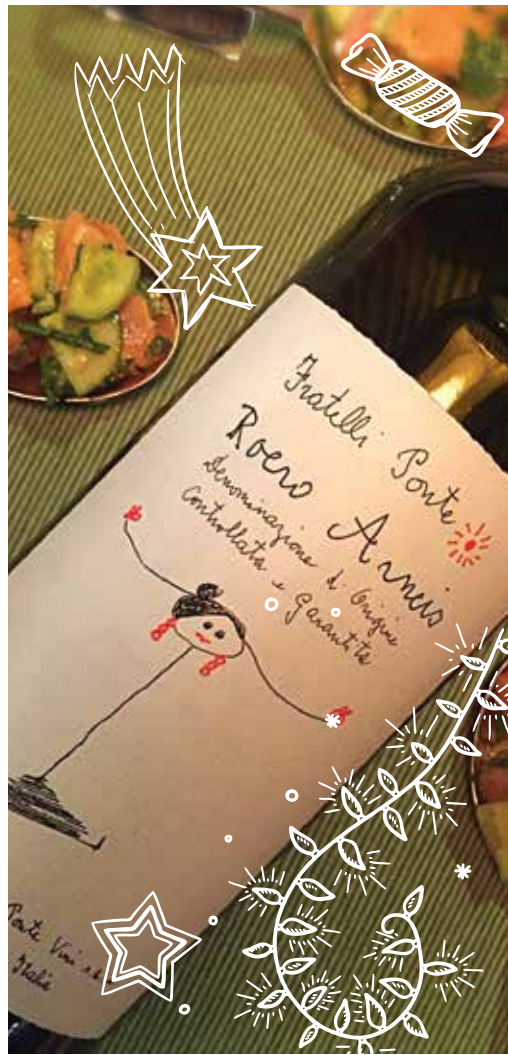 Fratelli Ponte
Roero Arneis
Denominazione d'Origine
Controllata e Garantita
Ponte Vini s.r.l.
Italia